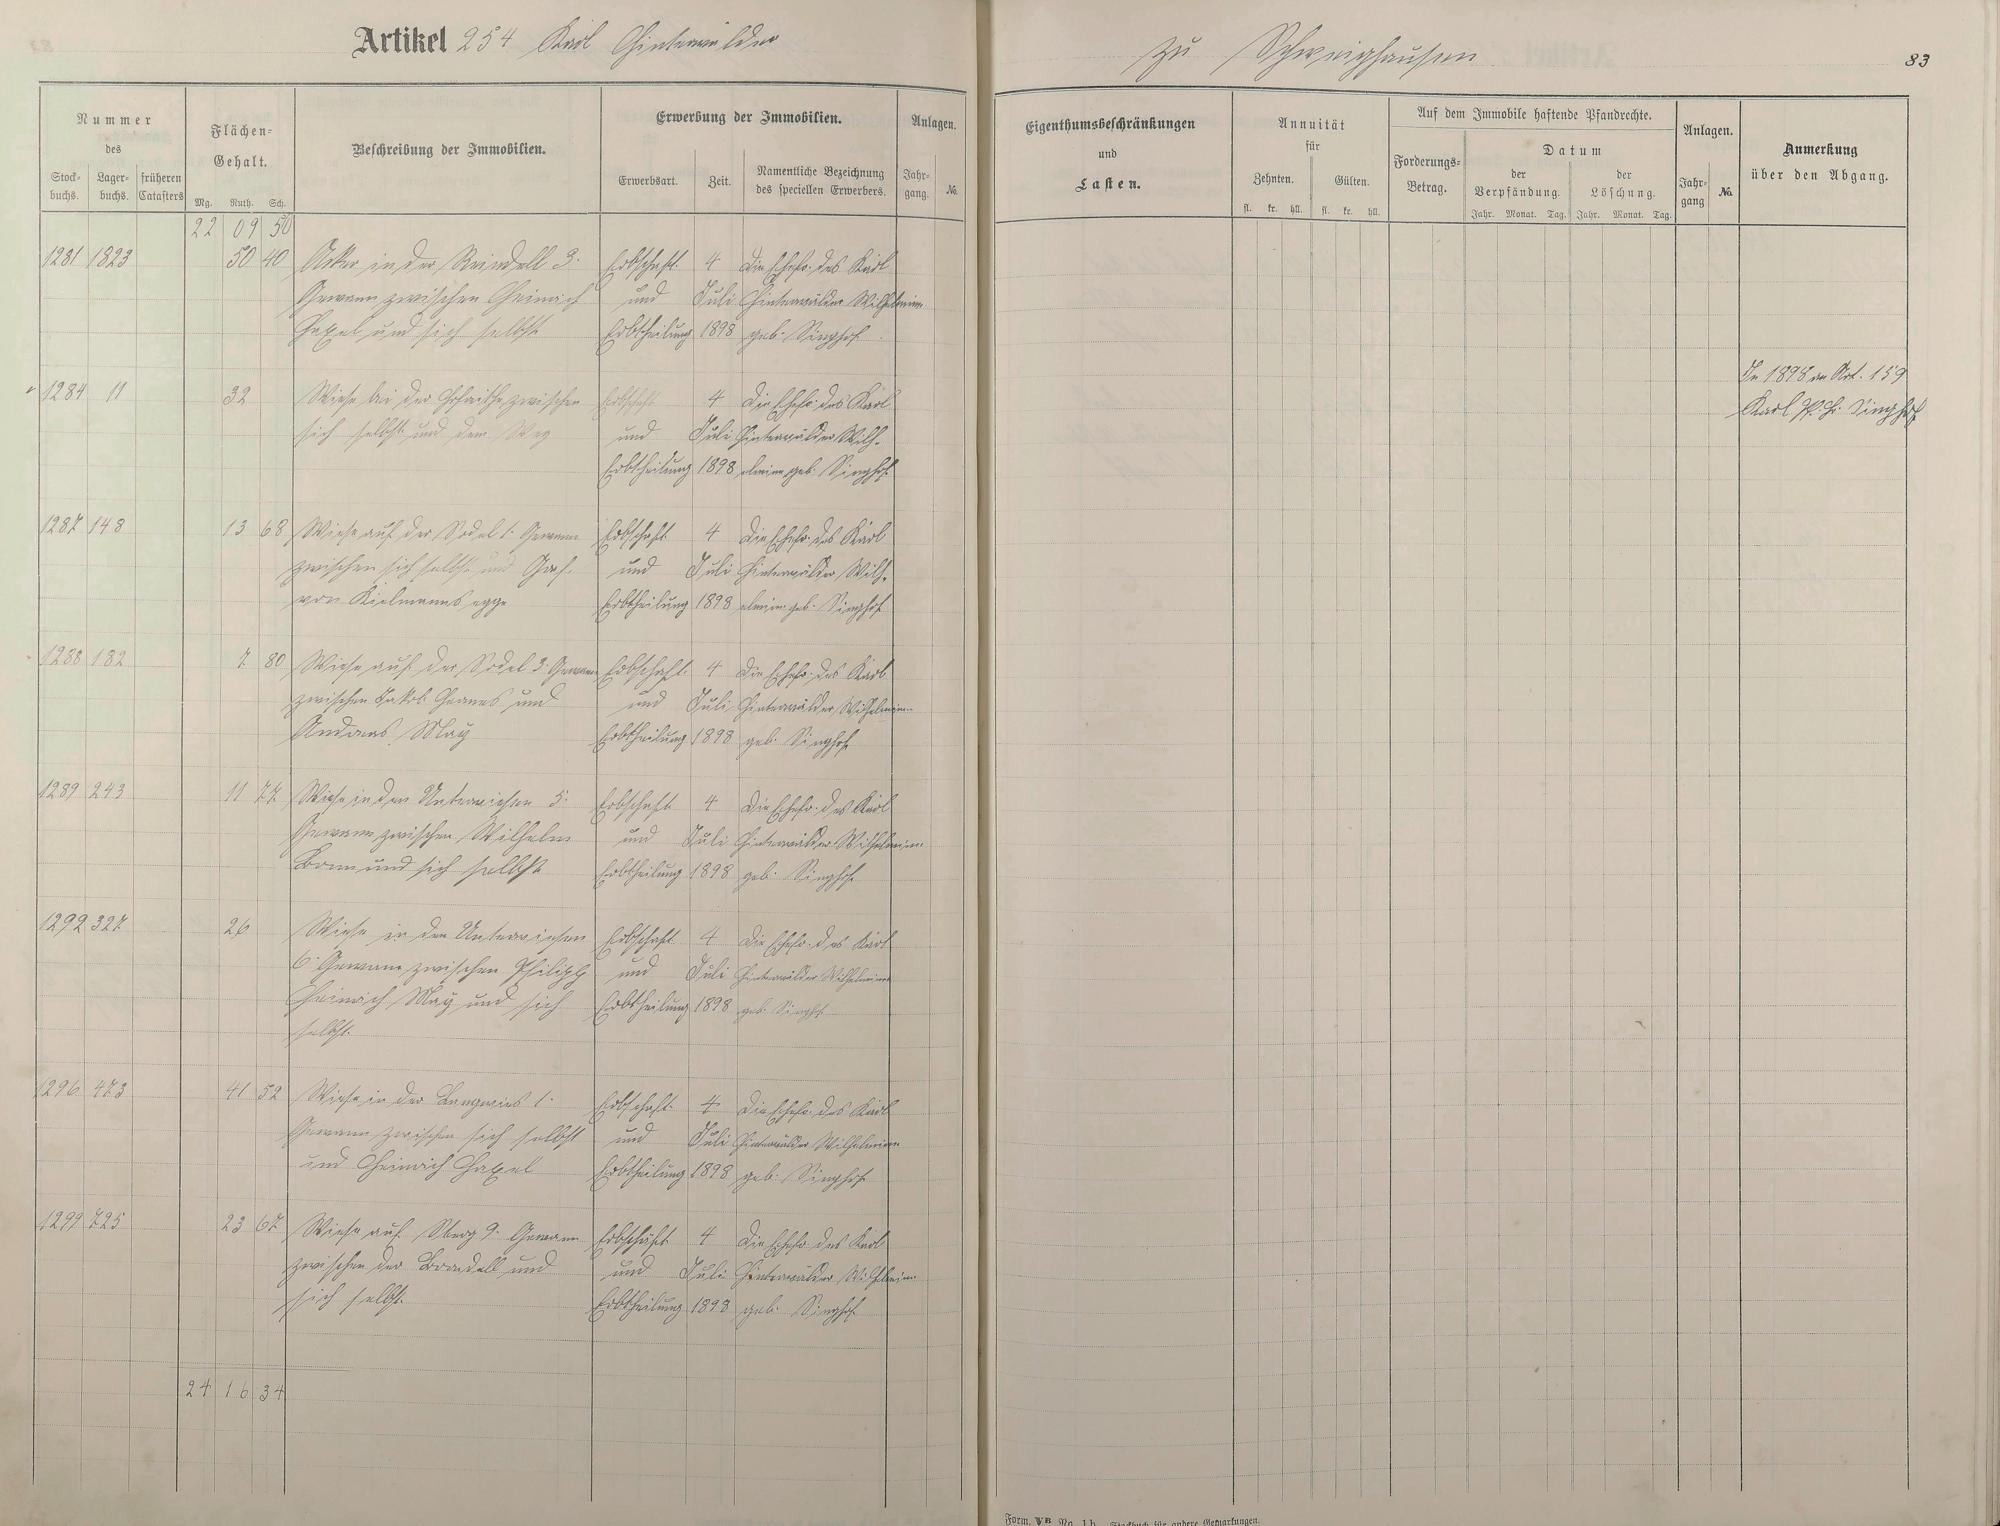 Artikel 254 Karl Hinterwälder
zu Schweighausen
83
Nummer
des
Stock-
buchs.
Lager-
buchs.
früheren
Catasters
Flächen-
Gehalt.
Mg. Ruth. Sch.
Beschreibung der Immobilien.
Erwerbung der Immobilien.
Erwerbsart.
Zeit.
Namentliche Bezeichnung
des speciellen Erwerbers.
Anlagen.
Jahr-
gang.
No.
Eigenthumsbeschränkungen
und
Lasten.
Annuität
für
Zehnten.
Gülten.
fl. kr. hll. fl. kr. hll.
Auf dem Immobile haftende Pfandrechte.
Forderungs-
Betrag.
Datum
der
Verpfändung.
der
Löschung.
Jahr. Monat. Tag. Jahr. Monat. Tag.
Anlagen.
Jahr-
gang
No.
Anmerkung
über den Abgang.
22 09 50
1281 1823 50 40 Acker in der Reindell 3. Erbschaft 4 Die Ehefr. des Karl
Gewann zwischen Heinrich und Juli Hinterwälder Wilhelmine
Haxel und sich selbst Erbtheilung 1898 geb. Singhof
1284 11 32 Wiese bei der zwischen Erbschaft 4 Die Ehefr. des Karl
sich selbst und dem Weg und Juli Hinterwälder Wilh-
Erbtheilung 1898 elmine geb. Singhof
In 1898 an Art. 159
Karl Ph. H. Singhof
1287 148 13 68 Wiese auf der Sodel 1. Gewann Erbschaft 4 Die Ehefr. des Karl
zwischen sich selbst und Graf. und Juli Hinterwälder Wilh-
von Kielmannsegge Erbtheilung 1898 elmine geb. Singhof
1288 182 7 80 Wiese auf der Sodel 3. Gewann Erbschaft 4 Die Ehefr. des Karl
zwischen Jakob und und Juli Hinterwälder Wilhelmine
Andreas May Erbtheilung 1898 geb. Singhof
1289 243 11 77 Wiese in den Unterwiesen 5. Erbschaft 4 Die Ehefr. des Karl
Gewann zwischen Wilhelm und Juli Hinterwälder Wilhelmine
und sich selbst Erbtheilung 1898 geb. Singhof
1292 327 26 Wiese in den Unterwiesen Erbschaft 4 Die Ehefr. des Karl
6. Gewann zwischen Philipp und Juli Hinterwälder Wilhelmine
Heinrich May und sich Erbtheilung 1898 geb. Singhof
selbst
1296 473 41 52 Wiese in der Langwies 1. Erbschaft 4 Die Ehefr. des Karl
Gewann zwischen sich selbst und Juli Hinterwälder Wilhelmine
und Heinrich Haxel Erbtheilung 1898 geb. Singhof
1299 725 23 67 Wiese auf Sterg 9. Gewann Erbschaft 4 Die Ehefr. des Karl
zwischen der und und Juli Hinterwälder Wilhelmine
sich selbst Erbtheilung 1898 geb. Singhof
24 16 34
Form. VB No. 1b. Stockbuch für andere Gemarkungen.